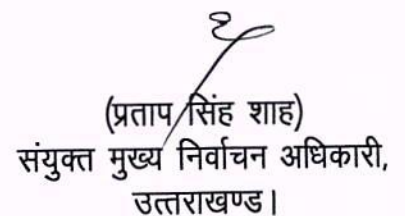 (प्रताप सिंह शाह)
संयुक्त मुख्य निर्वाचन अधिकारी,
उत्तराखण्ड।